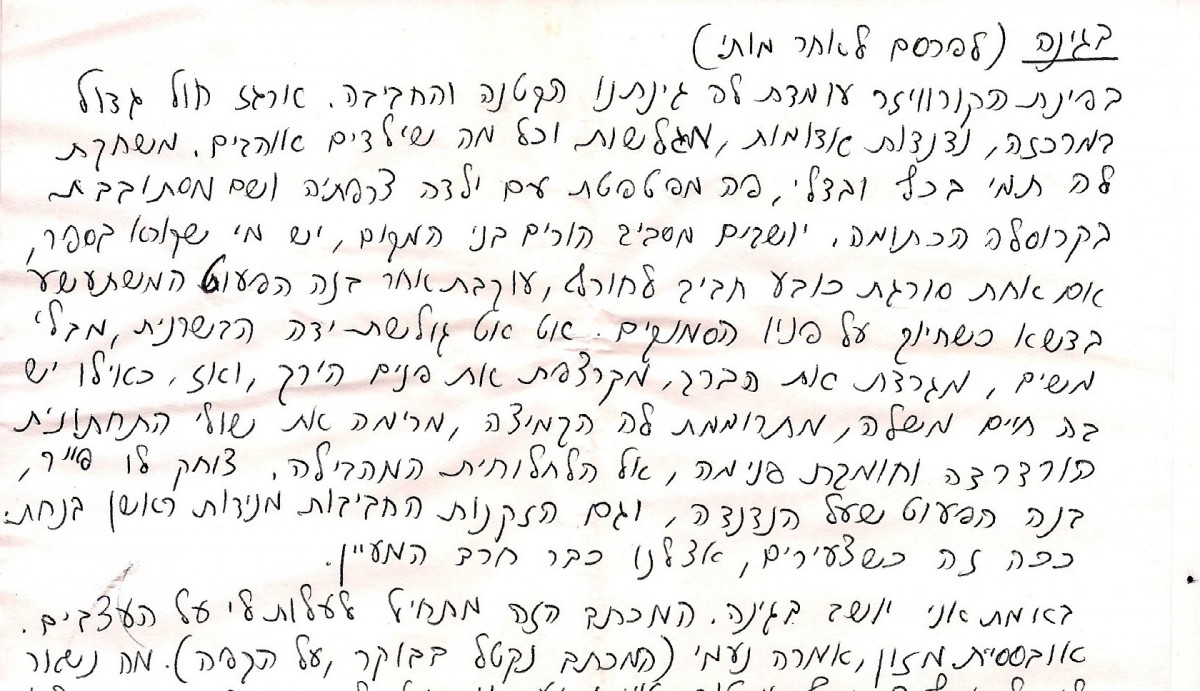 בגינה (לפרסם לאחר מותי)
בפינת הקורוויזר עומדת לה גינתנו הקטנה והחביבה. ארגז חול גדול
במרכזה, נדנדות אדומות, מגלשות וכל מה שילדים אוהבים. משחקת
לה תמי בכף ובדלי, פה מפטפטת עם ילדה צרפתיה ושם מסתובבת
בקרוסלה הכתומה. יושבים מסביב הורים בני המקום, יש מי שקורא בספר,
אם אחת סורגת כובע חביב לחורף, עוקבת אחר בנה הפעוט המשתעשע
בדשא כשחיוך על פניו הסמוקים. אט אט גולשת ידה הבשרנית, מבלי
משים, מגרדת את הברך, מקרצפת את פנים הירך, ואז, כאילו יש
בה חיים משלה, מתרוממת לה הקמיצה, מרימה את שולי התחתונית
הורדרדה וחומקת פנימה, אל הלחלוחית המהבילה. צוחק לו פייר,
בנה הפעוט שעל הנדנדה, וגם הזקנות החביבות מנידות ראשן בנחת.
ככה זה כשצעירים, אצלנו כבר חרב המעיין.
באמת אני יושב בגינה. המכתב הזה מתחיל לעלות לי על העצבים.
אובססיית מזון, אמרה נעמי (המכתב נקטל בבוקר, על הקפה). מה נשאר